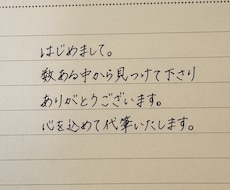 はじめまして。
数ある中から見つけて下さり
ありがとうございます。
心を込めて代筆いたします。